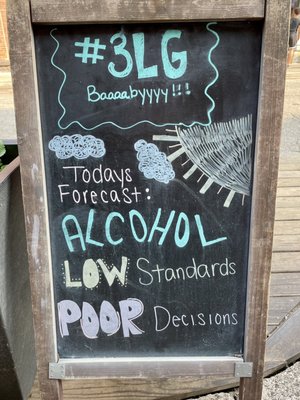 #3LG
Baaaabyyyy!!!
Todays
Forecast:
ALCOHOL
LOW Standards
POOR Decisions